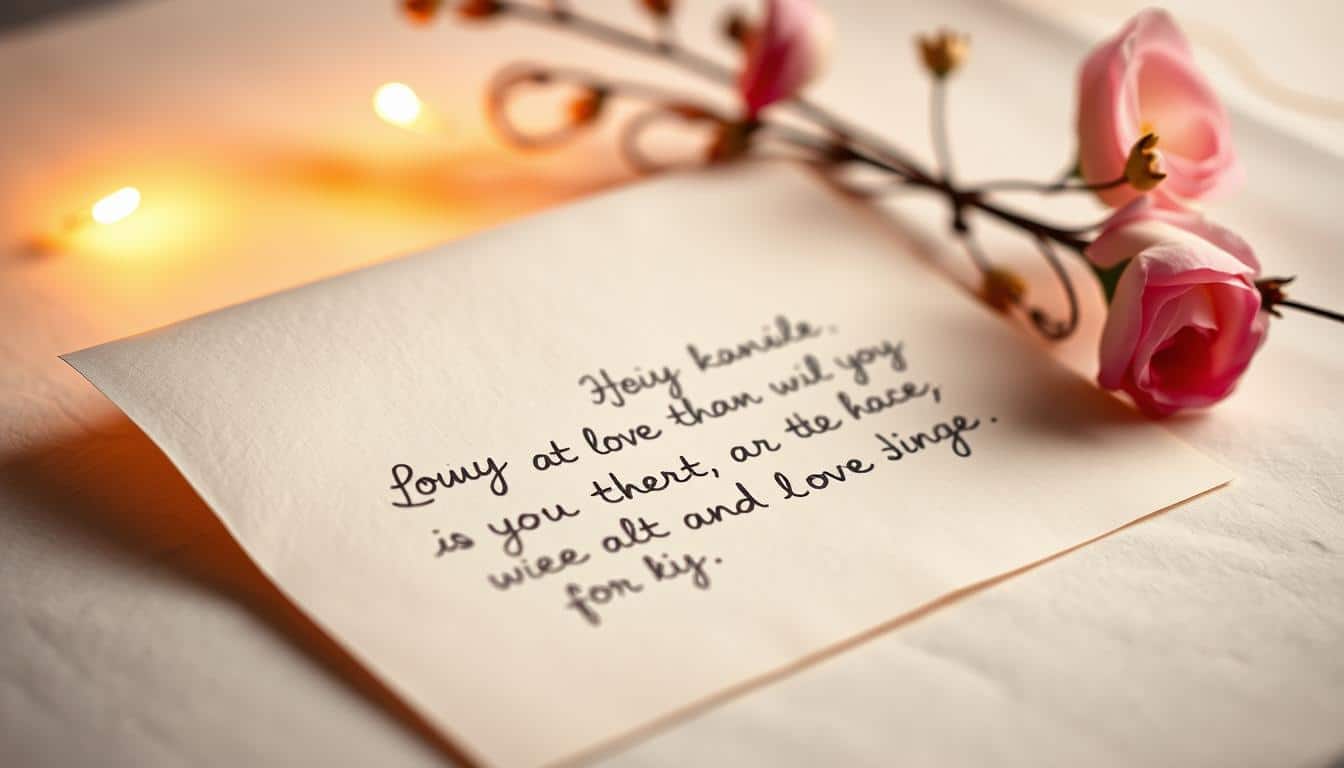 Heiy kanile.
Lowy at love than wil yoy
is you thert, ar tte hace,
wiee alt and love tinge.
for kiy.